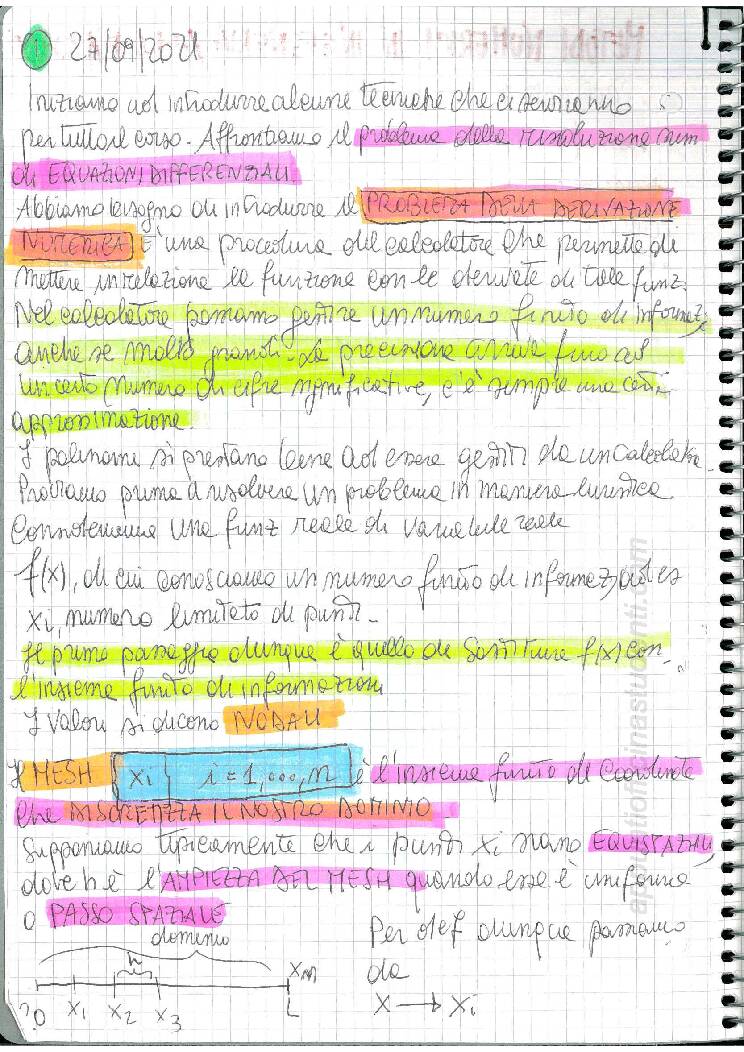 1 27/09/2021
Iniziamo ad introdurre alcune tecniche che ci serviranno
per tutto il corso. Affrontiamo il problema della risoluzione num
di EQUAZIONI DIFFERENZIALI
Abbiamo bisogno di introdurre il PROBLEMA DELLA DERIVAZIONE
NUMERICA È una procedura del calcolatore che permette di
mettere in relazione la funzione con le derivate di tale funz.
Nel calcolatore possiamo gestire un numero finito di informaz,
anche se molto grandi. La precisione arriva fino ad
un certo numero di cifre significative, c'è sempre una certa
approssimazione
I polinomi si prestano bene ad essere gestiti da un calcolatore.
Proviamo prima a risolvere un problema in maniera euristica
Consideriamo una funz reale di variabile reale
f(x), di cui conosciamo un numero finito di informaz, ad es
xi, numero limitato di punti.
Il primo passaggio dunque è quello di sostituire f(x) con
l'insieme finito di informazioni
I valori si dicono NODALI
Il MESH {xi} i = 1,...,n è l'insieme finito di coordinate
che DISCRETIZZA IL NOSTRO DOMINIO
Supponiamo tipicamente che i punti xi siano EQUISPAZIATI,
dove h è l'AMPIEZZA DEL MESH quando esso è uniforme
o PASSO SPAZIALE
dominio
h
xn
0 x1 x2 x3 L
Per def dunque passiamo
da
x → xi
appuntiofficinastudenti.com